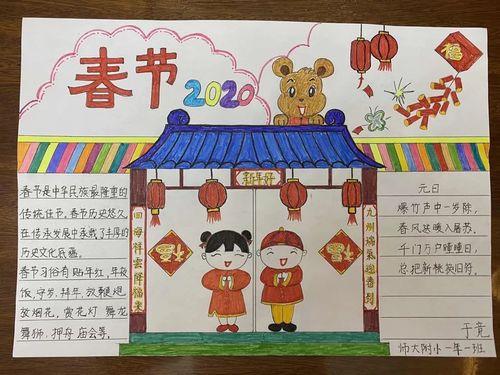 春节
2020
福
新年好
四海祥雲降福來
九州瑞氣迎春到
福
福
春节是中华民族最隆重的
传统佳节,春节历史悠久,
在传承发展中承载了丰厚的
历史文化底蕴。
春节习俗有贴年红、年夜
饭、守岁、拜年、放鞭炮
放烟花、赏花灯、舞龙
舞狮、押舟、庙会等。
元日
爆竹声中一岁除,
春风送暖入屠苏。
千门万户曈曈日,
总把新桃换旧符。
于竟
师大附小一年一班